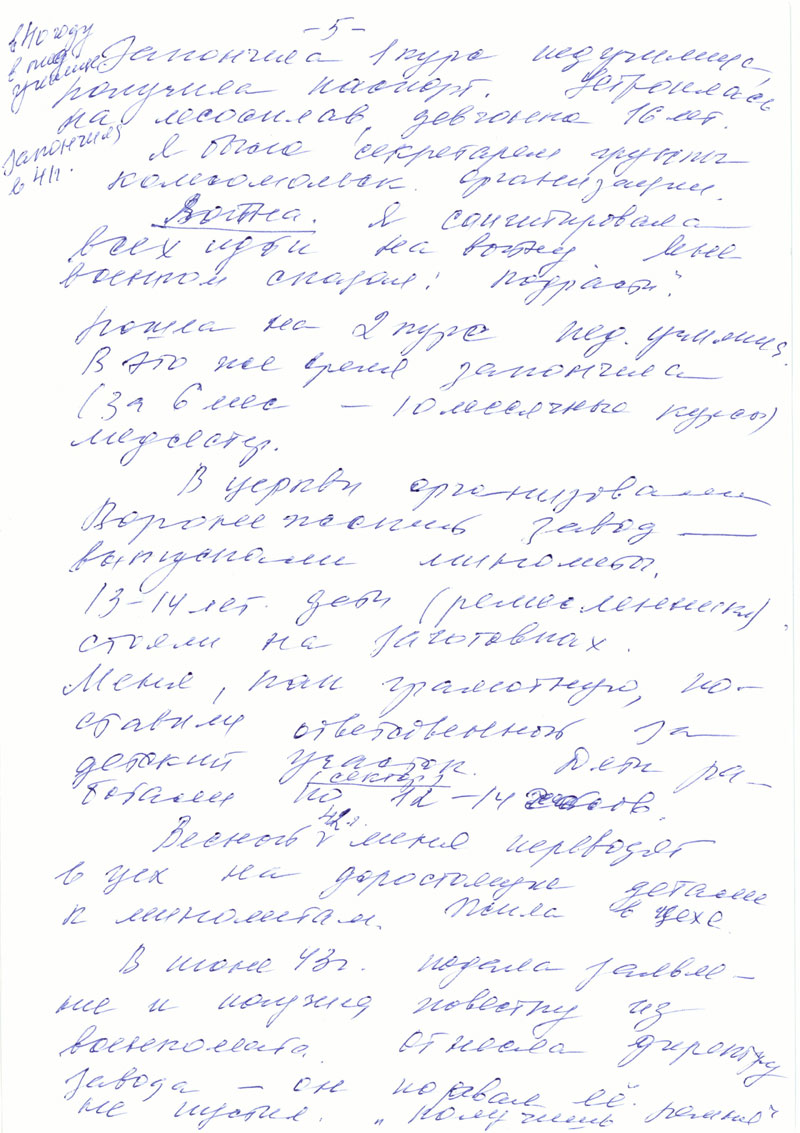 - 5 -
в 40 году
в пед
училище
закончила
в 41 г.
Закончила 1 курс педучилища,
получила паспорт. Устроилась
на лесосплав, девчонка 16 лет.
Я была секретарем группы
комсомольск. организации.
Война. Я сагитировала
всех идти на войну. Мне
военком сказал: "Подрасти".
Пошла на 2 курс пед. училища.
В это же время закончила
(за 6 мес – 10 месячные курсы)
медсестер.
В церкви организовали
Воронежский завод —
выпускали миномёты.
13-14 лет. дети (ремесленники)
стояли на заготовках.
Меня, как грамотную, по-
ставили ответственной за
детский участок. Дети ра-
(сектор)
ботали по 12-14 часов.
Весной 42 г. меня переводят
в цех на дорогостоящие детали
к минометам. Жила в цехе.
В июне 43 г. подала заявле-
ние и получила повестку из
военкомата. Отнесла директору
завода – он порвал её.
Не пустил. "Получишь ремня"